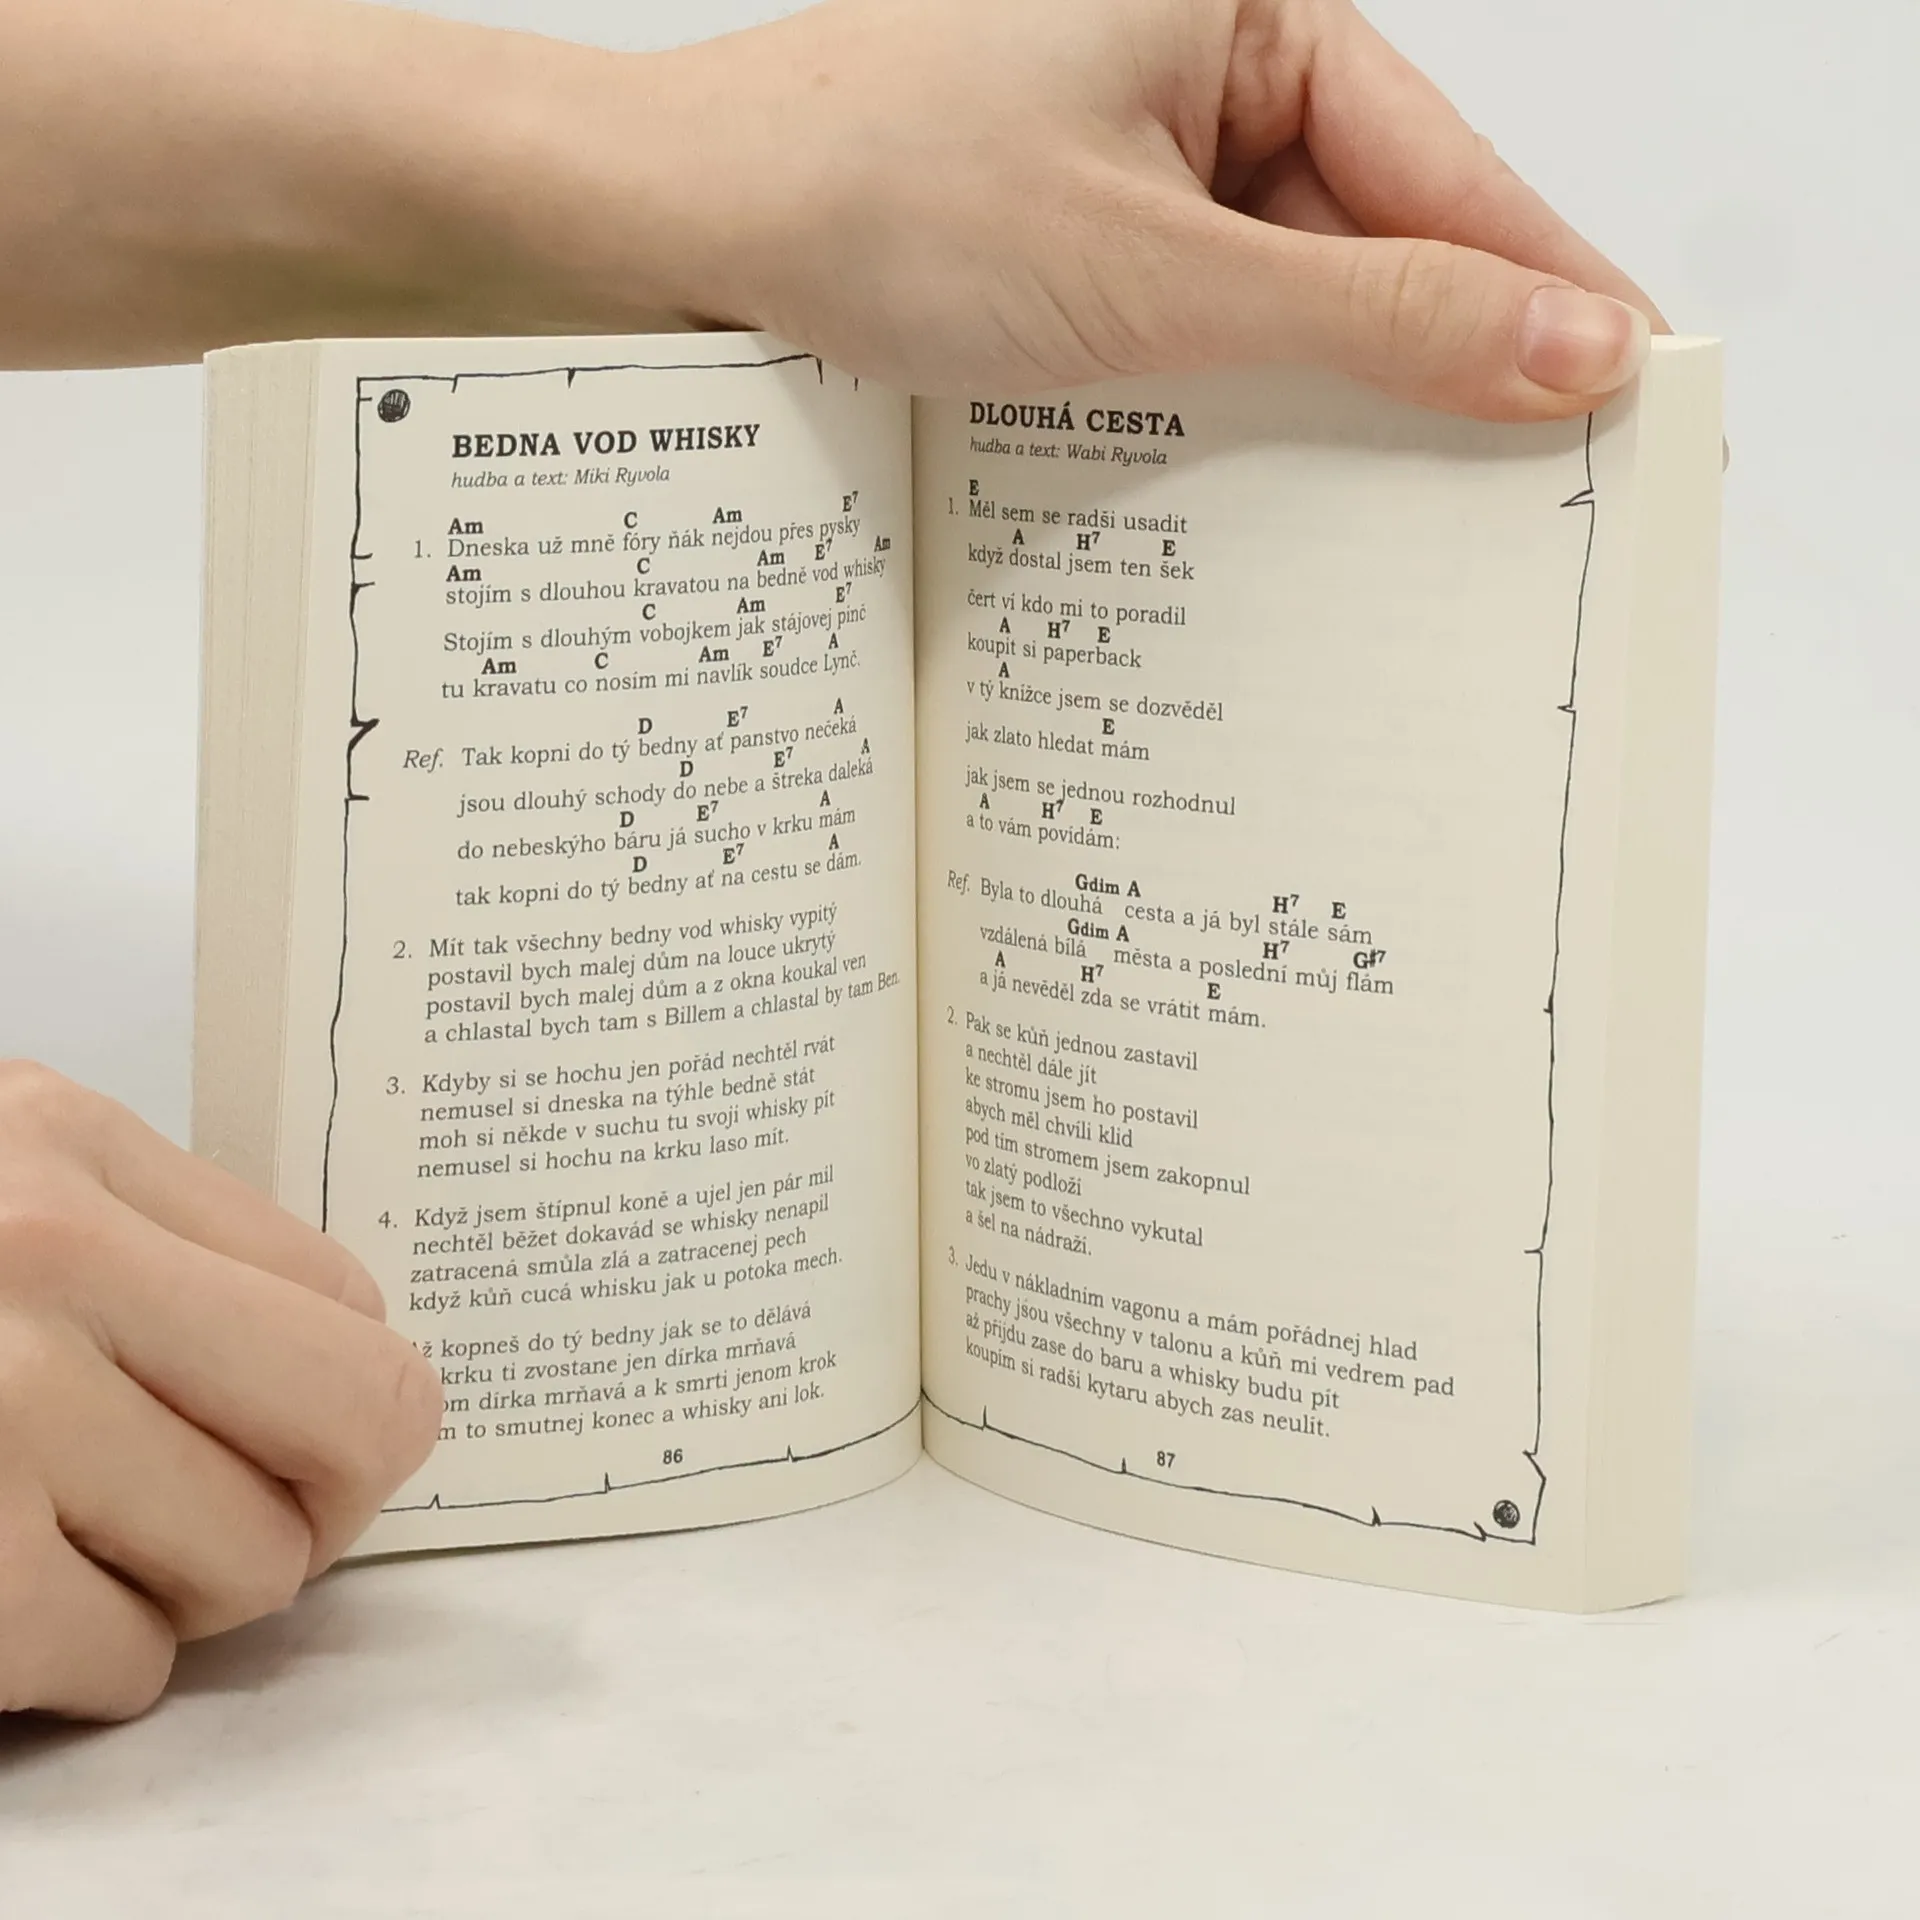 BEDNA VOD WHISKY
hudba a text: Miki Ryvola
Am C Am E7
1. Dneska už mně fóry ňák nejdou přes pysky
Am C Am E7 Am
stojím s dlouhou kravatou na bedně vod whisky
C Am E7
Stojím s dlouhým vobojkem jak stájovej pinč
Am C Am E7 A
tu kravatu co nosím mi navlík soudce Lynč.
D E7 A
Ref. Tak kopni do tý bedny ať panstvo nečeká
D E7 A
jsou dlouhý schody do nebe a štreka daleká
D E7 A
do nebeskýho báru já sucho v krku mám
D E7 A
tak kopni do tý bedny ať na cestu se dám.
2. Mít tak všechny bedny vod whisky vypitý
postavil bych malej dům na louce ukrytý
postavil bych malej dům a z okna koukal ven
a chlastal bych tam s Billem a chlastal by tam Ben.
3. Kdyby si se hochu jen pořád nechtěl rvát
nemusel si dneska na týhle bedně stát
moh si někde v suchu tu svoji whisky pít
nemusel si hochu na krku laso mít.
4. Když jsem štípnul koně a ujel jen pár mil
nechtěl běžet dokavád se whisky nenapil
zatracená smůla zlá a zatracenej pech
když kůň cucá whisku jak u potoka mech.
kopneš do tý bedny jak se to dělává
krku ti zvostane jen dírka mrňavá
dírka mrňavá a k smrti jenom krok
to smutnej konec a whisky ani lok.
86
DLOUHÁ CESTA
hudba a text: Wabi Ryvola
E
1. Měl sem se radši usadit
A H7 E
když dostal jsem ten šek
čert ví kdo mi to poradil
A H7 E
koupit si paperback
A
v tý knížce jsem se dozvěděl
E
jak zlato hledat mám
jak jsem se jednou rozhodnul
A H7 E
a to vám povídám:
Gdim A H7 E
Ref. Byla to dlouhá cesta a já byl stále sám
Gdim A H7 G#7
vzdálená bílá města a poslední můj flám
A H7 E
a já nevěděl zda se vrátit mám.
2. Pak se kůň jednou zastavil
a nechtěl dále jít
ke stromu jsem ho postavil
abych měl chvíli klid
pod tím stromem jsem zakopnul
vo zlatý podloží
tak jsem to všechno vykutal
a šel na nádraží.
3. Jedu v nákladním vagonu a mám pořádnej hlad
prachy jsou všechny v talonu a kůň mi vedrem pad
až přijdu zase do baru a whisky budu pít
koupím si radši kytaru abych zas neulít.
87